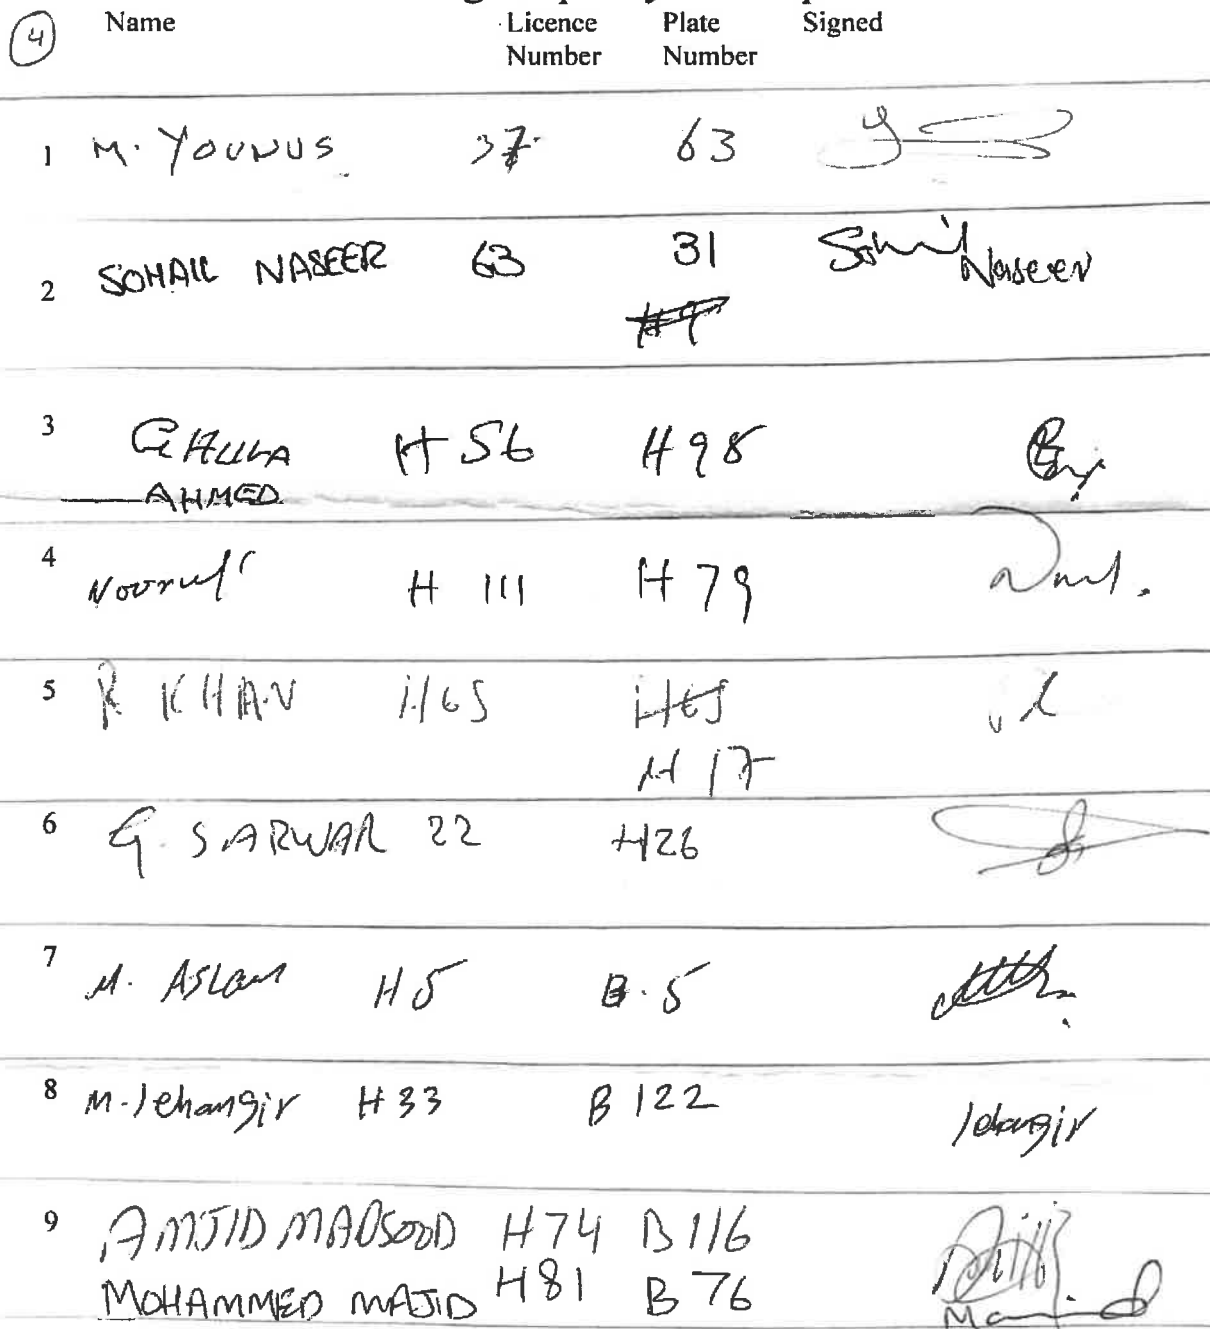 4
Name Licence Number Plate Number Signed
1 M. YOUNUS 37 63
2 SOHAIL NASEER 63 31 Sohail Naseer
3 GHULA AHMED H 56 H 98
4 H 111 H 79
5 R KHAN H65 H65
H 17
6 G. SARWAR 22 H26
7 M. ASLAM H 5 B. 5
8 M. Jehangir H 33 B 122 Jehangir
9 AMJID MAQSOOD H74 B 116
MOHAMMED MAJID H81 B 76